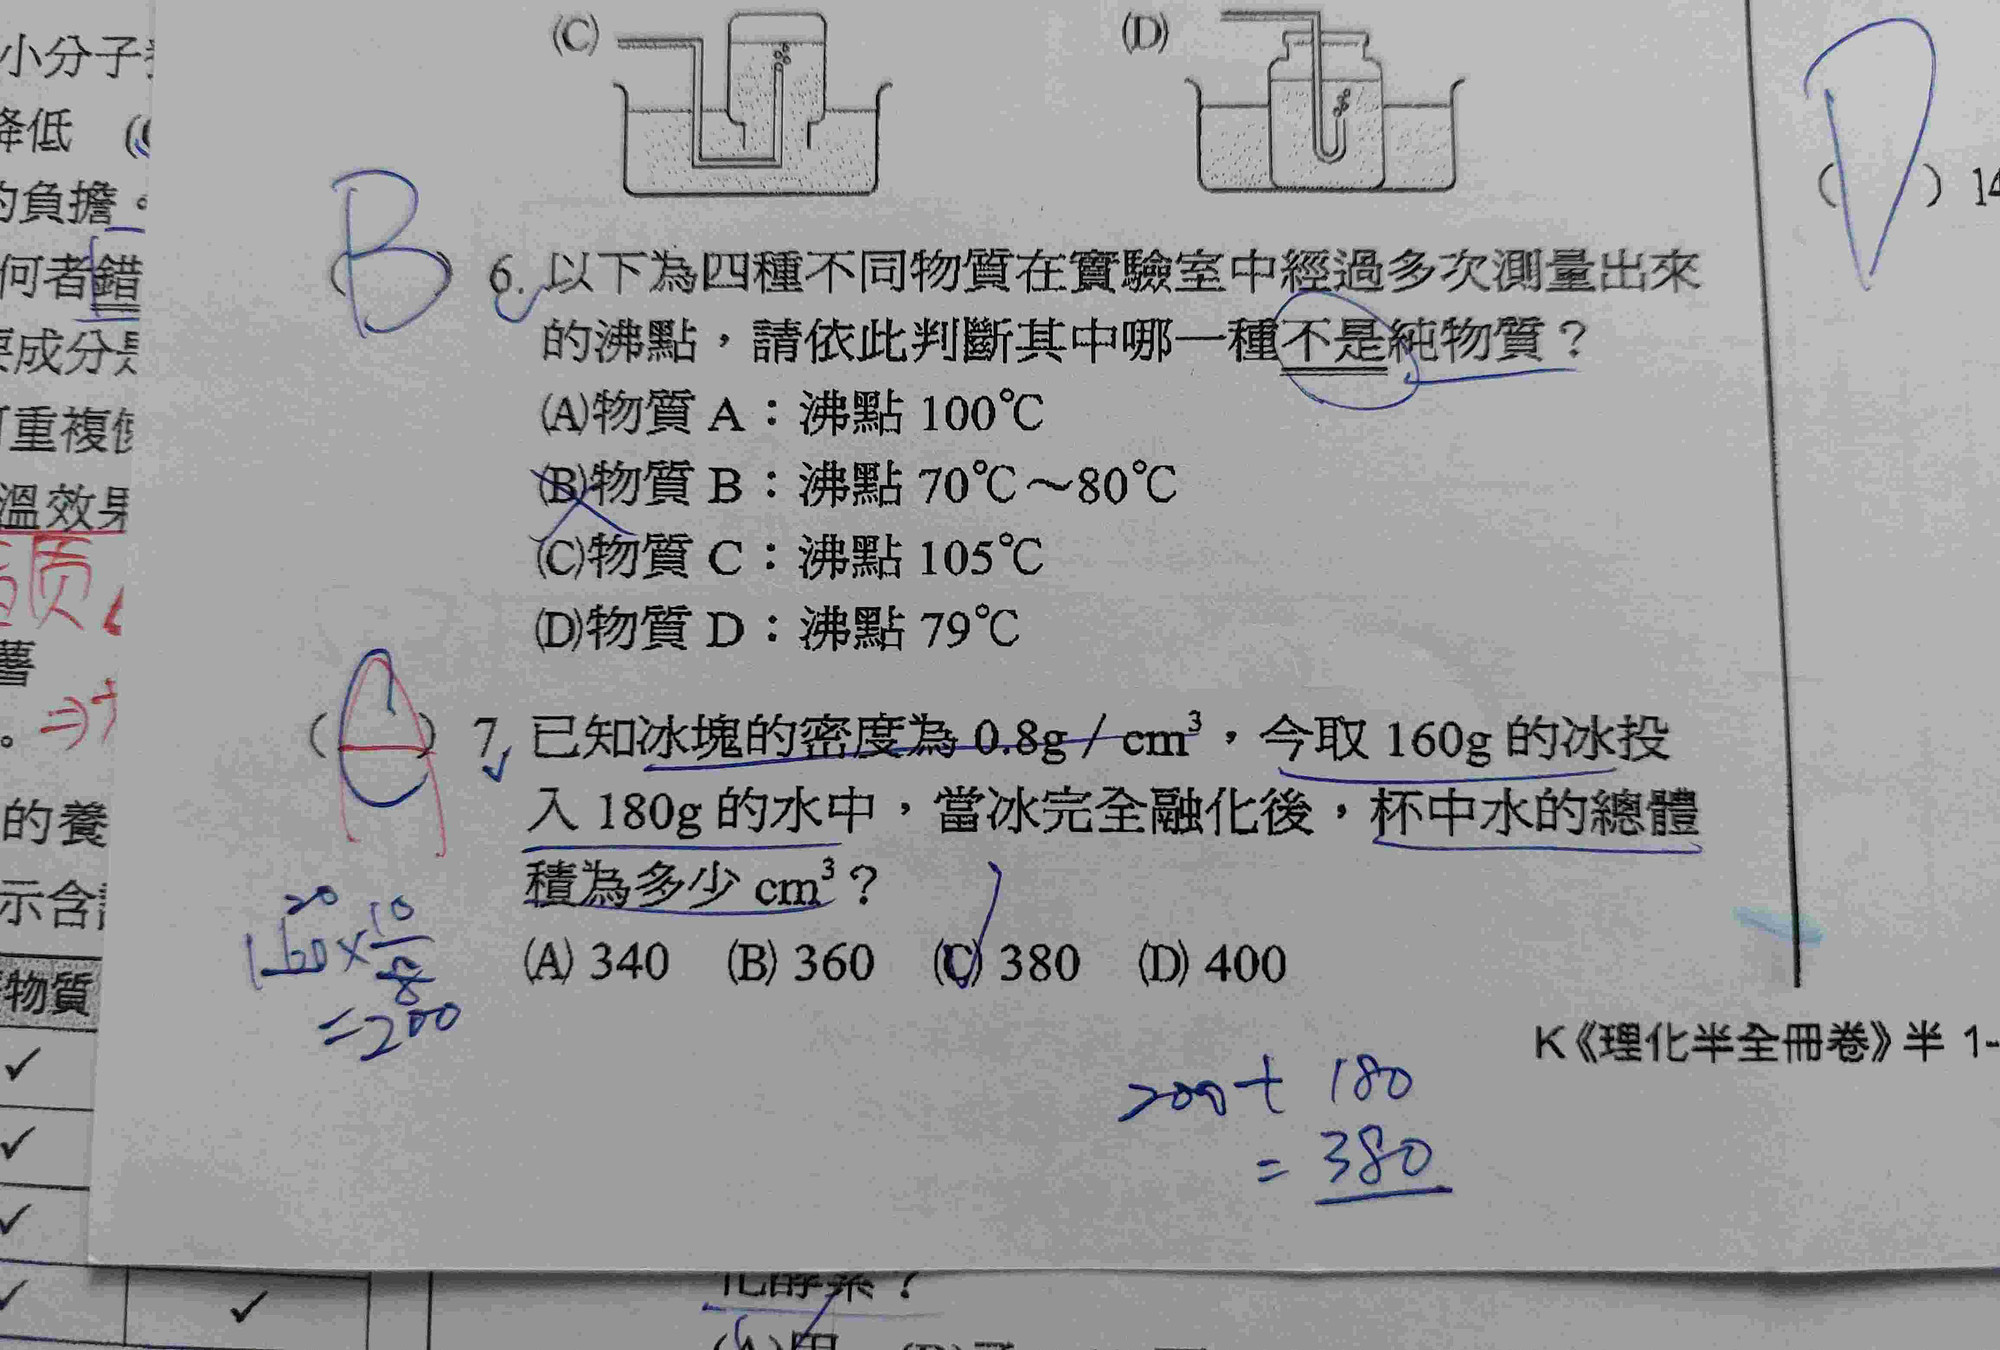 小分子
降低
的負擔。
何者錯
成分是
重複使
溫效果
质
薯
。⇒
的養
示含
物質
✓
✓
✓
✓ ✓
(C) (D)
(B) 6. 以下為四種不同物質在實驗室中經過多次測量出來
的沸點，請依此判斷其中哪一種不是純物質？
(A)物質 A：沸點 100℃
(B)物質 B：沸點 70℃～80℃
(C)物質 C：沸點 105℃
(D)物質 D：沸點 79℃
(A) 7. 已知冰塊的密度為 0.8g / cm³，今取 160g 的冰投
入 180g 的水中，當冰完全融化後，杯中水的總體
積為多少 cm³？
(A) 340 (B) 360 (C) 380 (D) 400
20
160×10/8
=200
200+180
=380
K《理化半全冊卷》半 1-
(D) 14
化酵素？
(A)甲